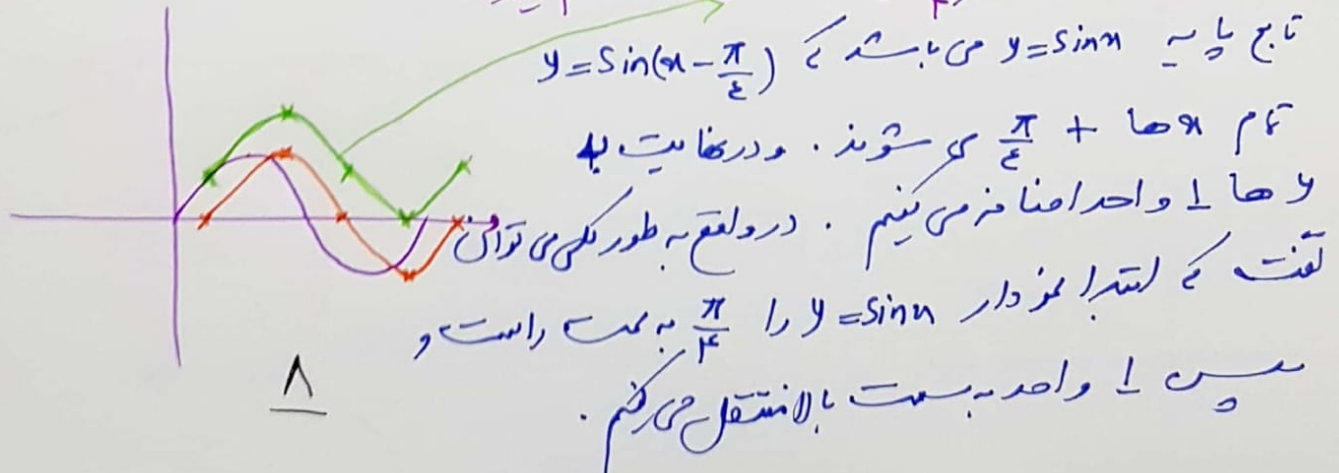 تابع پایه y=sinx می باشد که y=sin(x-π/۴)
تمام xها + π/۴ می شوند . و در نهایت به
y ها 1 واحد اضافه می کنیم . در واقع به طور کلی می توان
گفت که ابتدا نمودار y=sinx را π/۴ به سمت راست و
سپس 1 واحد به سمت بالا منتقل می کنیم .
۸